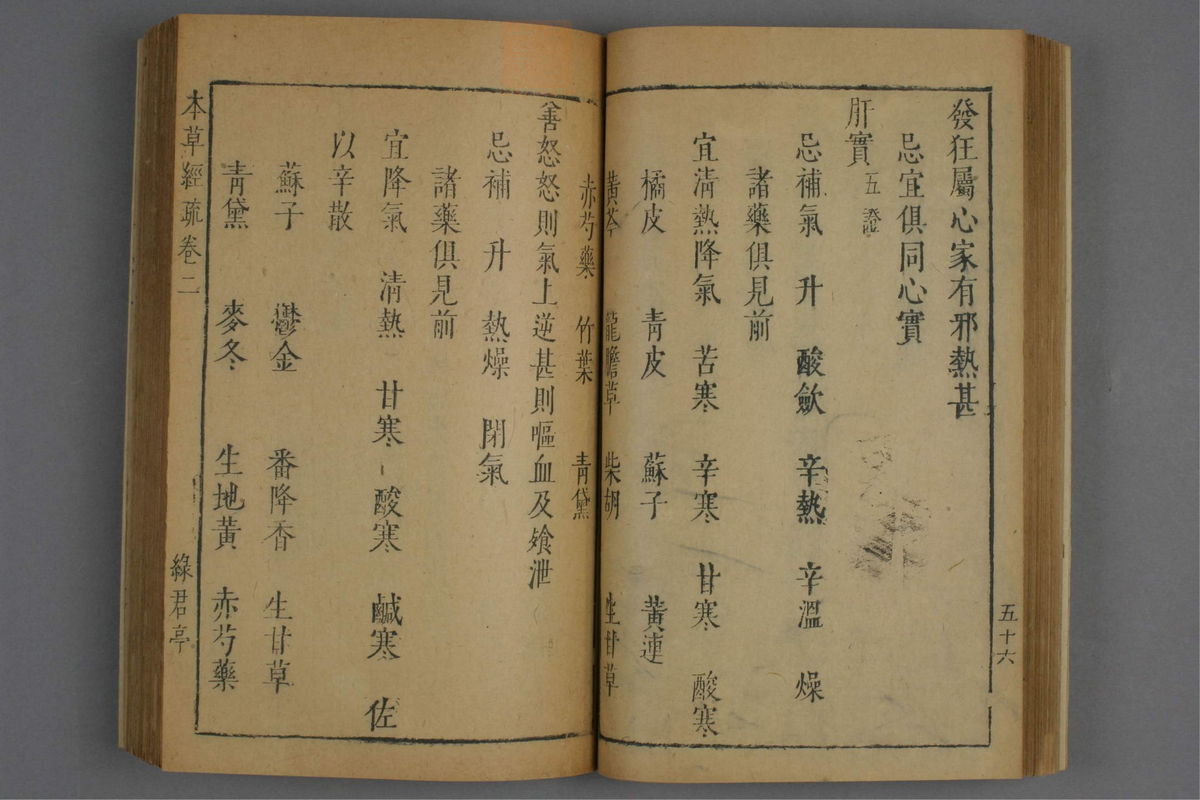 發狂屬心家有邪熱甚
忌宜俱同心實
肝實五證
忌補氣 升 酸斂 辛熱 辛溫 燥
諸藥俱見前
宜清熱降氣 苦寒 辛寒 甘寒 酸寒
橘皮 青皮 蘇子 黃連
黃芩 龍膽草 柴胡 生甘草
五十六
赤芍藥 竹葉 青黛
善怒怒則氣上逆甚則嘔血及飱泄
忌補 升 熱燥 閉氣
諸藥俱見前
宜降氣 清熱 甘寒 酸寒 鹹寒 佐
以辛散
蘇子 鬱金 番降香 生甘草
青黛 麥冬 生地黃 赤芍藥
本草經疏卷二 綠君亭